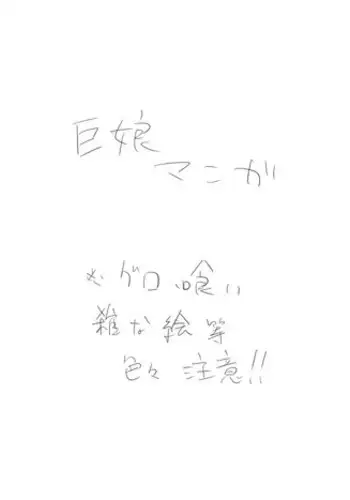 巨娘
マニガ
※グロ、喰い
雑な絵等
色々 注意!!